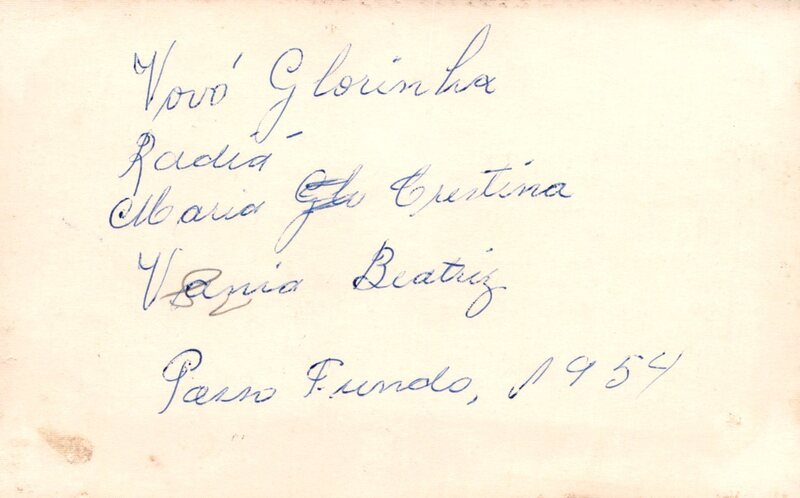 Vovó Glorinha
Radiá
Maria Cristina
Vania Beatriz
Passo Fundo, 1954